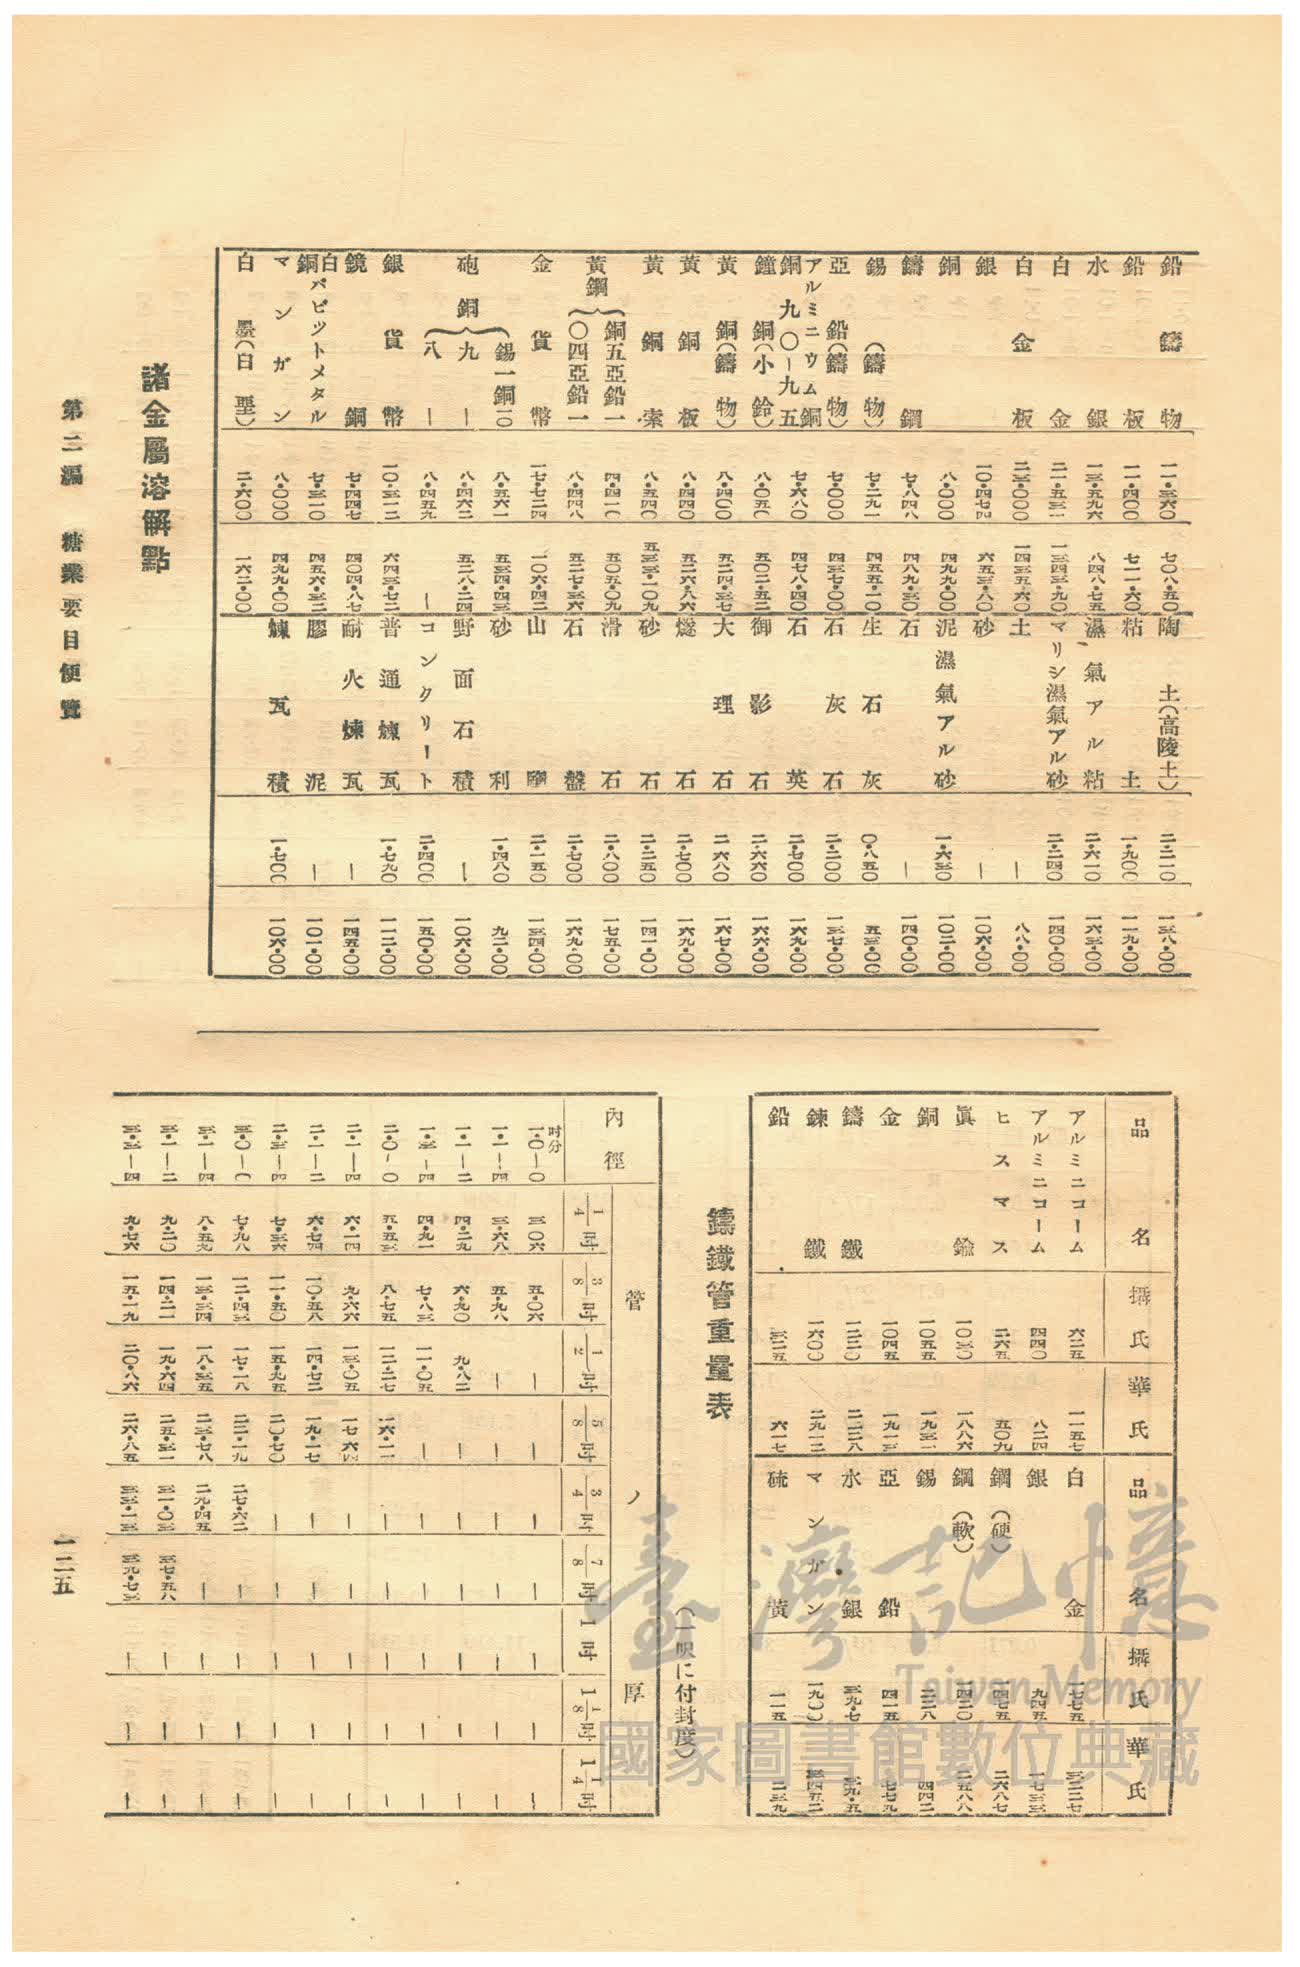 鉛鑄物 一一・三六〇 七〇八・五〇 陶土(高陵土) 二・二一〇 一三八・〇〇
鉛板 一一・四〇〇 七一一・六〇 粘土 一・九〇〇 一一九・〇〇
水銀 一三・五九六 八四八・七五 濕氣アル粘 二・六一〇 一六三・〇〇
白金 二一・五三一 一三四三・九〇 マリシ濕氣アル砂 二・二四〇 一四〇・〇〇
白金板 二三・〇〇〇 一四三五・六〇 土 ― 八八・〇〇
銀 一〇・四七四 六五三・八〇 砂 ― 一〇六・〇〇
銅 八・〇〇〇 四九九・〇〇 泥濕氣アル砂 一・六三〇 一〇二・〇〇
鑄鋼 七・八四八 四八九・三〇 石 ― 一四〇・〇〇
錫(鑄物) 七・二九一 四五五・一〇 生石灰 〇・八五〇 五三・〇〇
亞鉛(鑄物) 七・〇〇〇 四三七・〇〇 石灰石 二・二〇〇 一三七・〇〇
アルミニウム銅
銅九〇―九五 七・六八〇 四七八・四〇 石英 二・七〇〇 一六九・〇〇
鐘銅(小鈴) 八・〇五〇 五〇二・五二 御影石 二・六六〇 一六六・〇〇
黃銅(鑄物) 八・四〇〇 五二四・三七 大理石 二・六八〇 一六七・〇〇
黃銅板 八・四四〇 五二六・八六 燧石 二・七〇〇 一六九・〇〇
黃銅索 八・五四〇 五三三・一〇九 砂石 二・二五〇 一四一・〇〇
黃鋼 銅五亞鉛一 四・四一〇 五〇五・〇九 滑石 二・八〇〇 一七五・〇〇
〇四亞鉛一 八・四四八 五二七・三六 石盤 二・七〇〇 一六九・〇〇
金貨幣 一七・七二四 一〇六・四二 山墮 二・一五〇 一三四・〇〇
砲銅 錫一銅一〇 八・五六一 五三四・四三 砂利 一・四八〇 九二・〇〇
九― 八・四六二 五二八・二四 野面石積 ― 一〇六・〇〇
八― 八・四五九 ― コンクリート 二・四〇〇 一五〇・〇〇
銀貨幣 一〇・三一二 六四三・七二 普通煉瓦 一・七九〇 一一二・〇〇
鏡銅 七・四四七 四〇四・八七 耐火煉瓦 ― 一四五・〇〇
白銅バビツトメタル 七・三一〇 四五六・三二 膠泥 ― 一〇一・〇〇
マンガン 八・〇〇〇 四九九・〇〇 煉瓦積 一・七〇〇 一〇六・〇〇
白墨(白堊) 二・六〇〇 一六二・〇〇
諸金屬溶解點
第二編 糖業要目便覽
品名 攝氏 華氏 品名 攝氏 華氏
アルミニコーム 六二五 一一五七 白金 一七七五 三二二七
アルミニコーム 四四〇 八二四 銀 九四五 一七三三
ヒスマス 二六五 五〇九 鋼(硬) 一四七五 二六八七
眞鍮 一〇三〇 一八八六 鋼(軟) 一四二〇 二五八八
銅 一〇五五 一九三一 錫 二二八 四四二
金 一〇四五 一九一三 亞鉛 四一五 七七九
鑄鐵 一二二〇 二二二八 水銀 三九・七 三九・五
鍊鐵 一六〇〇 二九一二 マンガン 一九〇〇 三四五二
鉛 三二五 六一七 硫黃 一一五 二三九
鑄鐵管重量表
(一呎に付封度)
管ノ厚
內徑 1/4吋 3/8吋 1/2吋 5/8吋 3/4吋 7/8吋 1吋 1 1/8吋 1 1/4吋
吋分
一・〇―〇 三・〇六 五・〇六 ― ― ― ― ― ― ―
一・一―四 三・六八 五・九八 ― ― ― ― ― ― ―
一・一―二 四・二九 六・九〇 九・八二 ― ― ― ― ― ―
一・三―四 四・九一 七・八三 一一・〇五 ― ― ― ― ― ―
二・〇―〇 五・五三 八・七五 一二・二七 一六・一一 ― ― ― ― ―
二・一―四 六・一四 九・六六 一三・〇五 一七・六四 ― ― ― ― ―
二・一―二 六・七四 一〇・五八 一四・七二 一九・一七 ― ― ― ― ―
二・三―四 七・三六 一一・五〇 一五・九五 二〇・七〇 ― ― ― ― ―
三・〇―〇 七・九八 一二・四三 一七・一八 二二・一九 二七・六二 ― ― ― ―
三・一―四 八・五九 一三・三四 一八・三五 二三・七八 二九・四五 ― ― ― ―
三・一―二 九・二〇 一四・二一 一九・六四 二五・三一 三一・〇三 三七・五八 ― ― ―
三・三―四 九・七六 一五・一九 二〇・八六 二六・八五 三三・一三 三九・七三 ― ― ―
一二五
臺灣記憶
Taiwan Memory
國家圖書館數位典藏